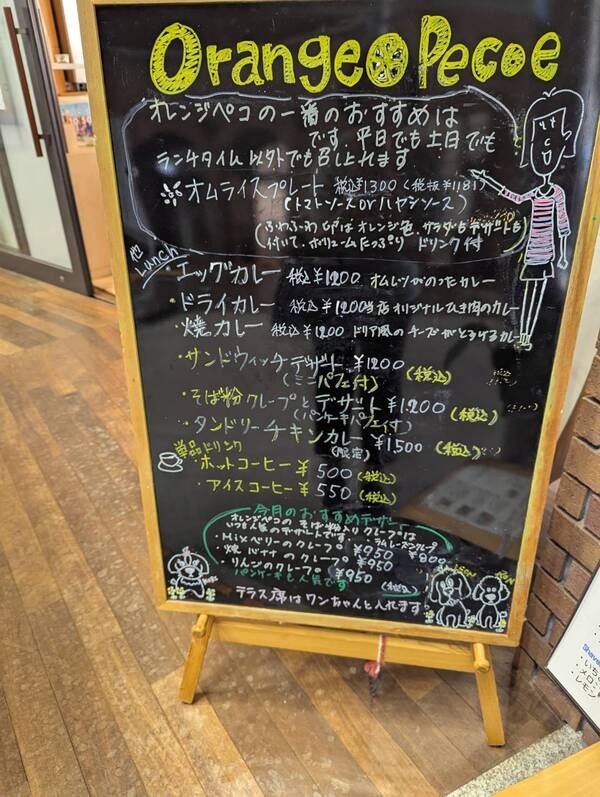 Orange Pecoe
オレンジペコの一番のおすすめは
です。平日でも土日でも
ランチタイム以外でもBしれます
オムライスプレート 税込¥1300 (税抜¥1181)
(トマトソース or ハヤシソース)
(ふわふわ卵はオレンジ色、サラダもデザートも
付いて、ボリュームたっぷり ドリンク付
他 Lunch
・エッグカレー 税込¥1200 オムレツがのったカレー
・ドライカレー 税込¥1200 当店オリジナルひき肉のカレー
・焼カレー 税込¥1200 ドリア風のチーズがとろけるカレー
・サンドウィッチデザート ¥1200 (税込)
(ミニパフェ付)
・そば粉クレープとデザート ¥1200 (税込)
(パンケーキパフェ付)
・タンドリーチキンカレー ¥1500 (税込)
(限定)
単品ドリンク
・ホットコーヒー ¥500 (税込)
・アイスコーヒー ¥550 (税込)
今月のおすすめデザート
オレンジペコのそば粉入りクレープは
いつも人気のデザートです。
・ラムレーズンクレープ ¥900
・Mixベリーのクレープ ¥950
・焼バナナのクレープ ¥950
・りんごのクレープ ¥950
パンケーキも人気です (税込)
テラス席はワンちゃんと入れます
いち
・メロ
・レモン